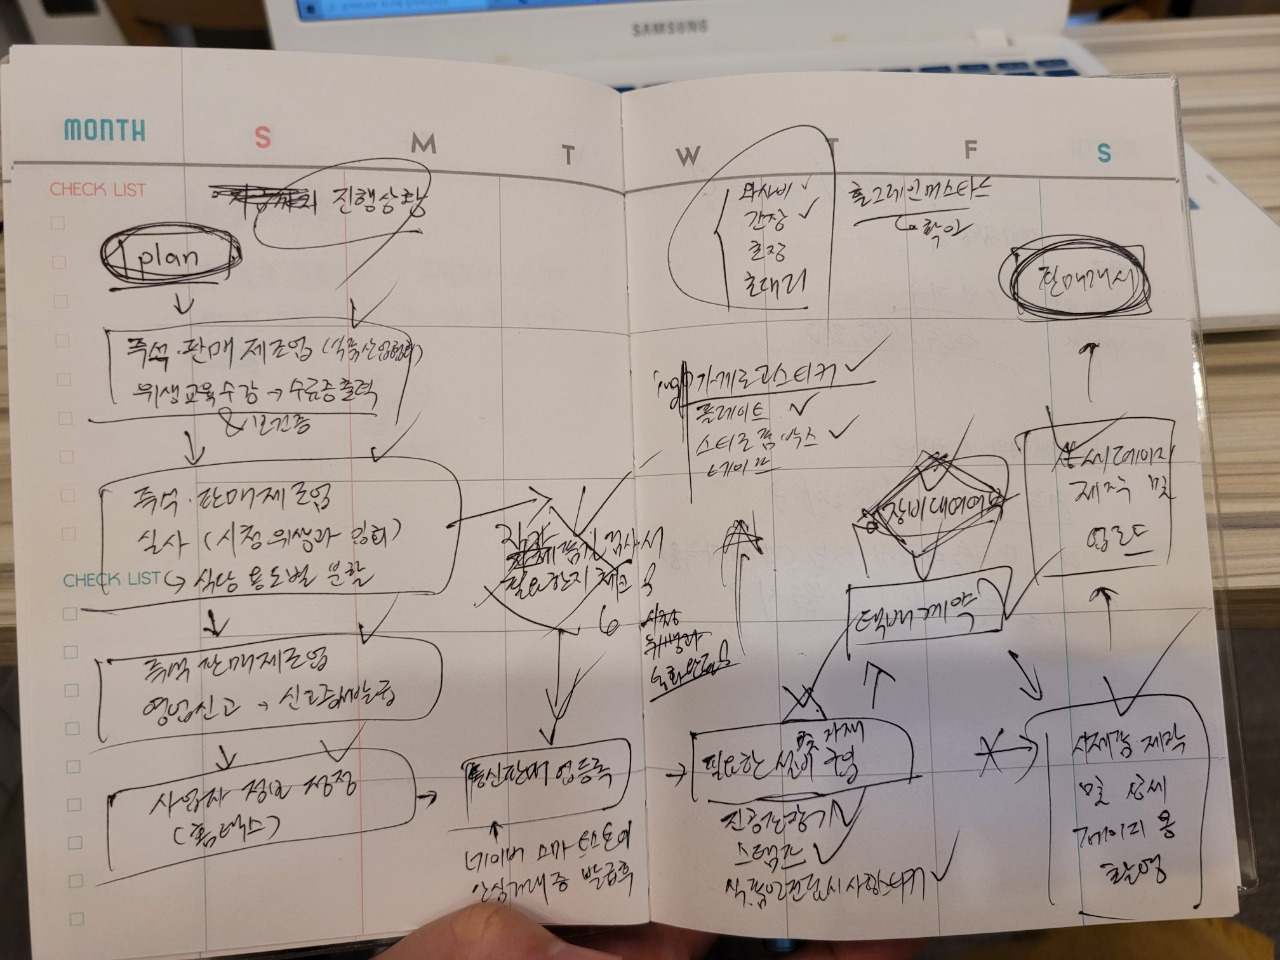 SAMSUNG
MONTH
S
M
T
W
T
F
S
CHECK LIST
진행상황
plan
즉석·판매 제조업 (식품산업협회)
위생교육 수강 → 수료증 출력
& 보건증
즉석·판매제조업
실사 (시청 위생과 )
CHECK LIST
→ 식당 용도별 분할
즉석 판매제조업
영업신고 → 신고증 발급
사업자 정보 정정
(홈택스)
검사서
필요한지 체크
통신판매업 등록
네이버 스마트스토어
안심거래증 발급후
와사비
간장
초장
초대리
홀그레인머스타드
확인
가게로고스티커
플레이트
스티로폼 박스
테이프
시청
위생과
장비대여
택배계약
필요한 설비 구매
진공포장기
스탬프
식품 표시사항스티커
판매개시
상세페이지
제작 및
업로드
시제품 제작
및 상세
페이지용
촬영